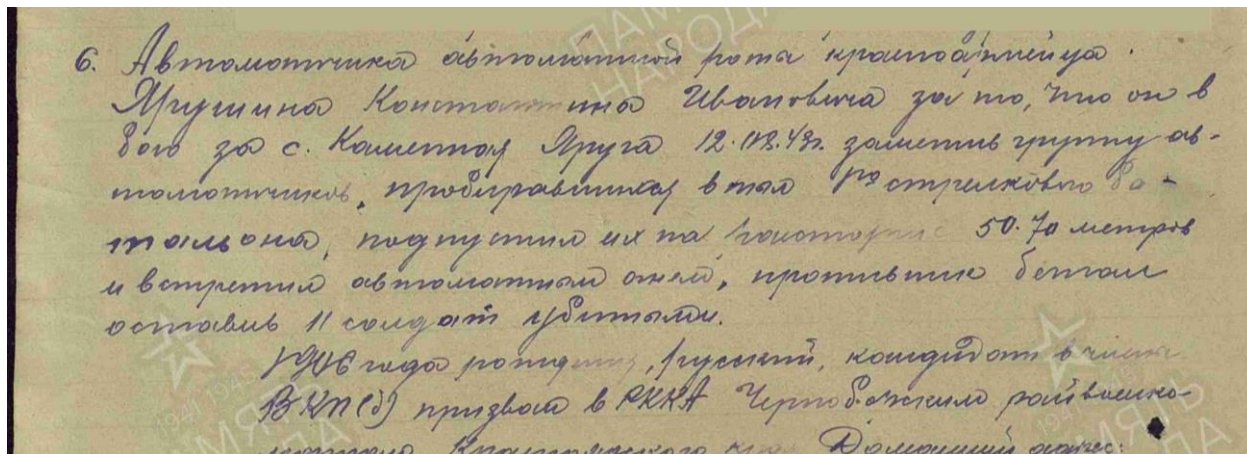 6. Автоматчика автоматной роты красноармейца
Ярушина Константина Ивановича за то, что он в
бою за с. Каменная Яруга 12.08.43г. заметив группу ав-
томатчиков, пробиравшихся в тыл стрелкового ба-
тальона, подпустил их на расстояние 50-70 метров
и встретил автоматным огнем, противник бежал
оставив 11 солдат убитыми.
года рождения, русский, кандидат в члены
ВКП(б) призван в РККА райвоенко-
матом Красноярского края Домашний адрес:
ПАМЯТЬ
НАРОДА
1941 1945